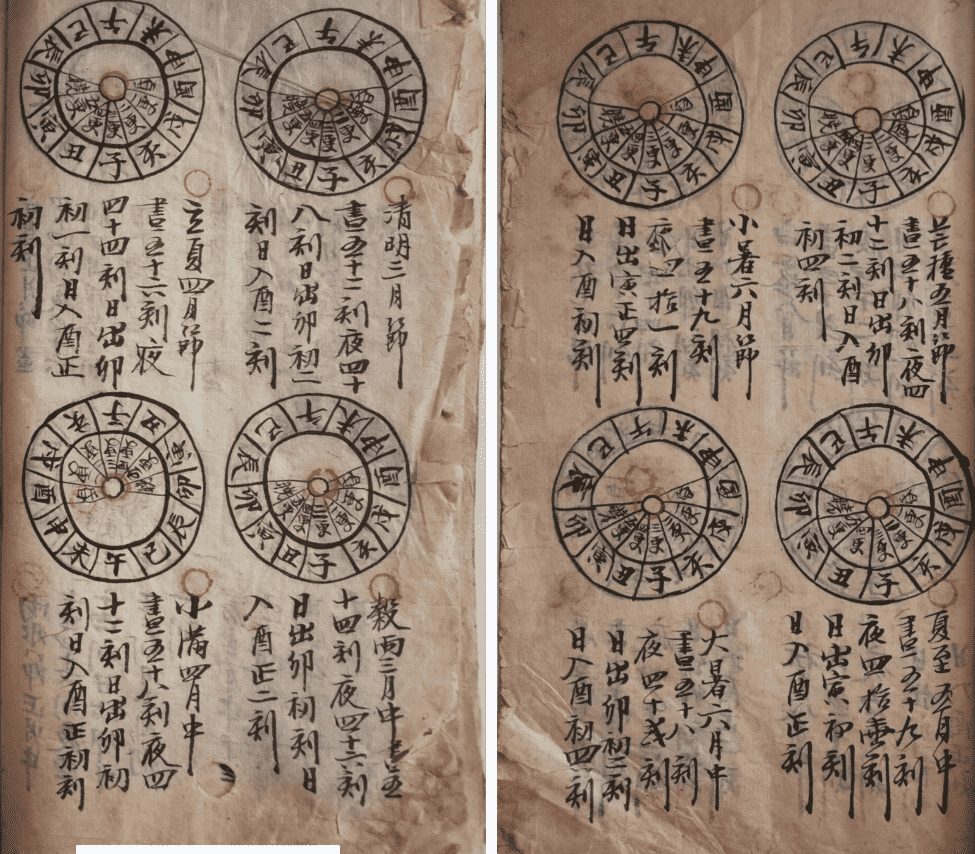 子丑寅卯辰巳午未申酉戌亥
清明三月節
晝五十二刻夜四十
八刻日出卯初二
刻日入酉二刻
子丑寅卯辰巳午未申酉戌亥
立夏四月節
晝五十六刻夜
四十四刻日出卯
初一刻日入酉正
初刻
子丑寅卯辰巳午未申酉戌亥
穀雨三月中晝五
十四刻夜四十六刻
日出卯初刻日
入酉正二刻
子丑寅卯辰巳午未申酉戌亥
小滿四月中
晝五十八刻夜四
十二刻日出卯初
刻日入酉正初刻
子丑寅卯辰巳午未申酉戌亥
芒種五月節
晝五十八刻夜四
十二刻日出卯
初二刻日入酉
初四刻
子丑寅卯辰巳午未申酉戌亥
小暑六月節
晝五十九刻
夜四拾一刻
日出寅正四刻
日入酉初刻
子丑寅卯辰巳午未申酉戌亥
夏至五月中
晝五十九刻
夜四拾壹刻
日出寅初刻
日入酉正刻
子丑寅卯辰巳午未申酉戌亥
大暑六月中
晝五十八刻
夜四十弍刻
日出卯初二刻
日入酉初四刻